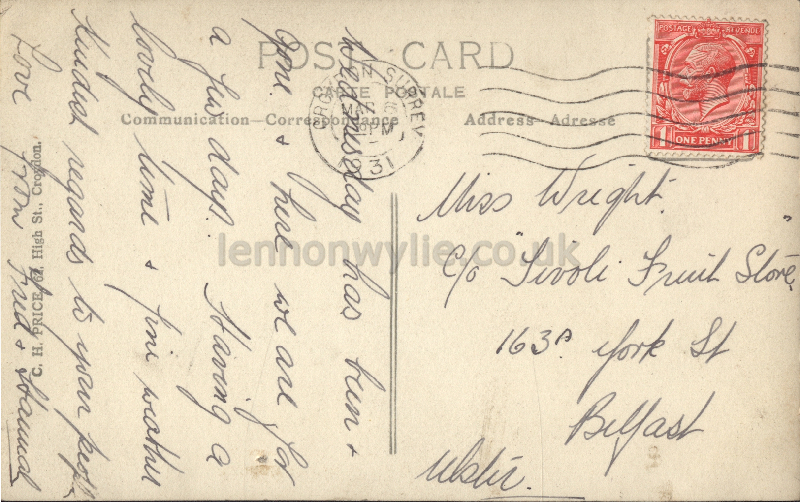 POST CARD
CARTE POSTALE
Communication-Correspondance
Address-Adresse
Wednesday has been &
gone & here we are for
a few days. Having a
lovely time & fine weather
Kindest regards to your people
Love from Fred & Hannah
C. H. PRICE, 62, High St., Croydon.
CROYDON SURREY
MAR
PM
31
POSTAGE REVENUE
1 1
ONE PENNY
Miss Wright.
c/o "Tivoli Fruit Store"
163A York St
Belfast
Ulster.
lennonwylie.co.uk